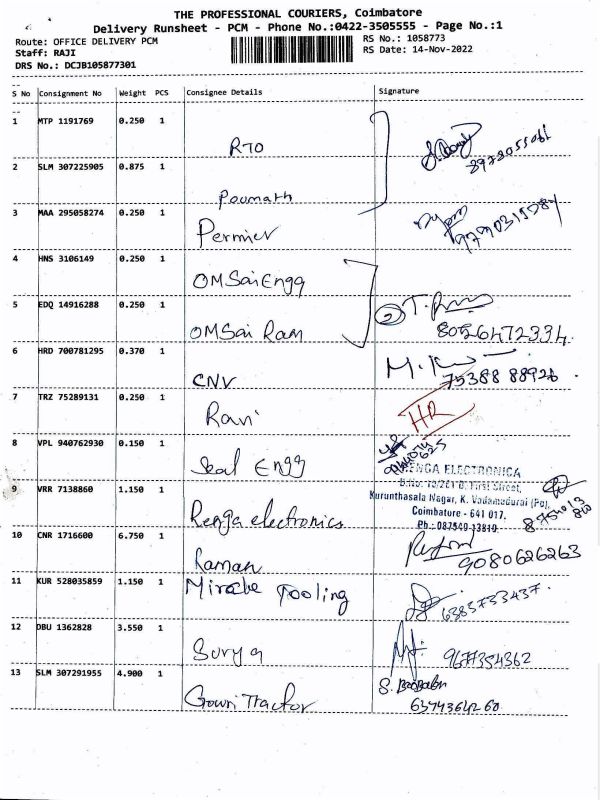 THE PROFESSIONAL COURIERS, Coimbatore
Delivery Runsheet - PCM - Phone No.:0422-3505555 - Page No.:1
Route: OFFICE DELIVERY PCM
RS No.: 1058773
Staff: RAJI
RS Date: 14-Nov-2022
DRS No.: DCJB105877301
S No Consignment No Weight PCS Consignee Details Signature
1 MTP 1191769 0.250 1 RTO
2 SLM 307225905 0.875 1
3 MAA 295058274 0.250 1 Permier
4 HNS 3106149 0.250 1 OMSaiEngg
5 EDQ 14916288 0.250 1 OMSai Ram 2
8056472334.
6 HRD 700781295 0.370 1 CNV
75388 88926
7 TRZ 75289131 0.250 1 Ravi HR
8 VPL 940762930 0.150 1 Seal Engg
9 VRR 7138860 1.150 1 Renga electronics
RENGA ELECTRONICA
Kurunthasala Nagar, K. Vadamadurai (Po),
Coimbatore - 641 017.
10 CNR 1716600 6.750 1 Raman
9080626263
11 KUR 528035859 1.150 1 Miracle Tooling
6385733437.
12 DBU 1362828 3.550 1 Surya
9677354362
13 SLM 307291955 4.900 1 Gowri Tractor
6374364260